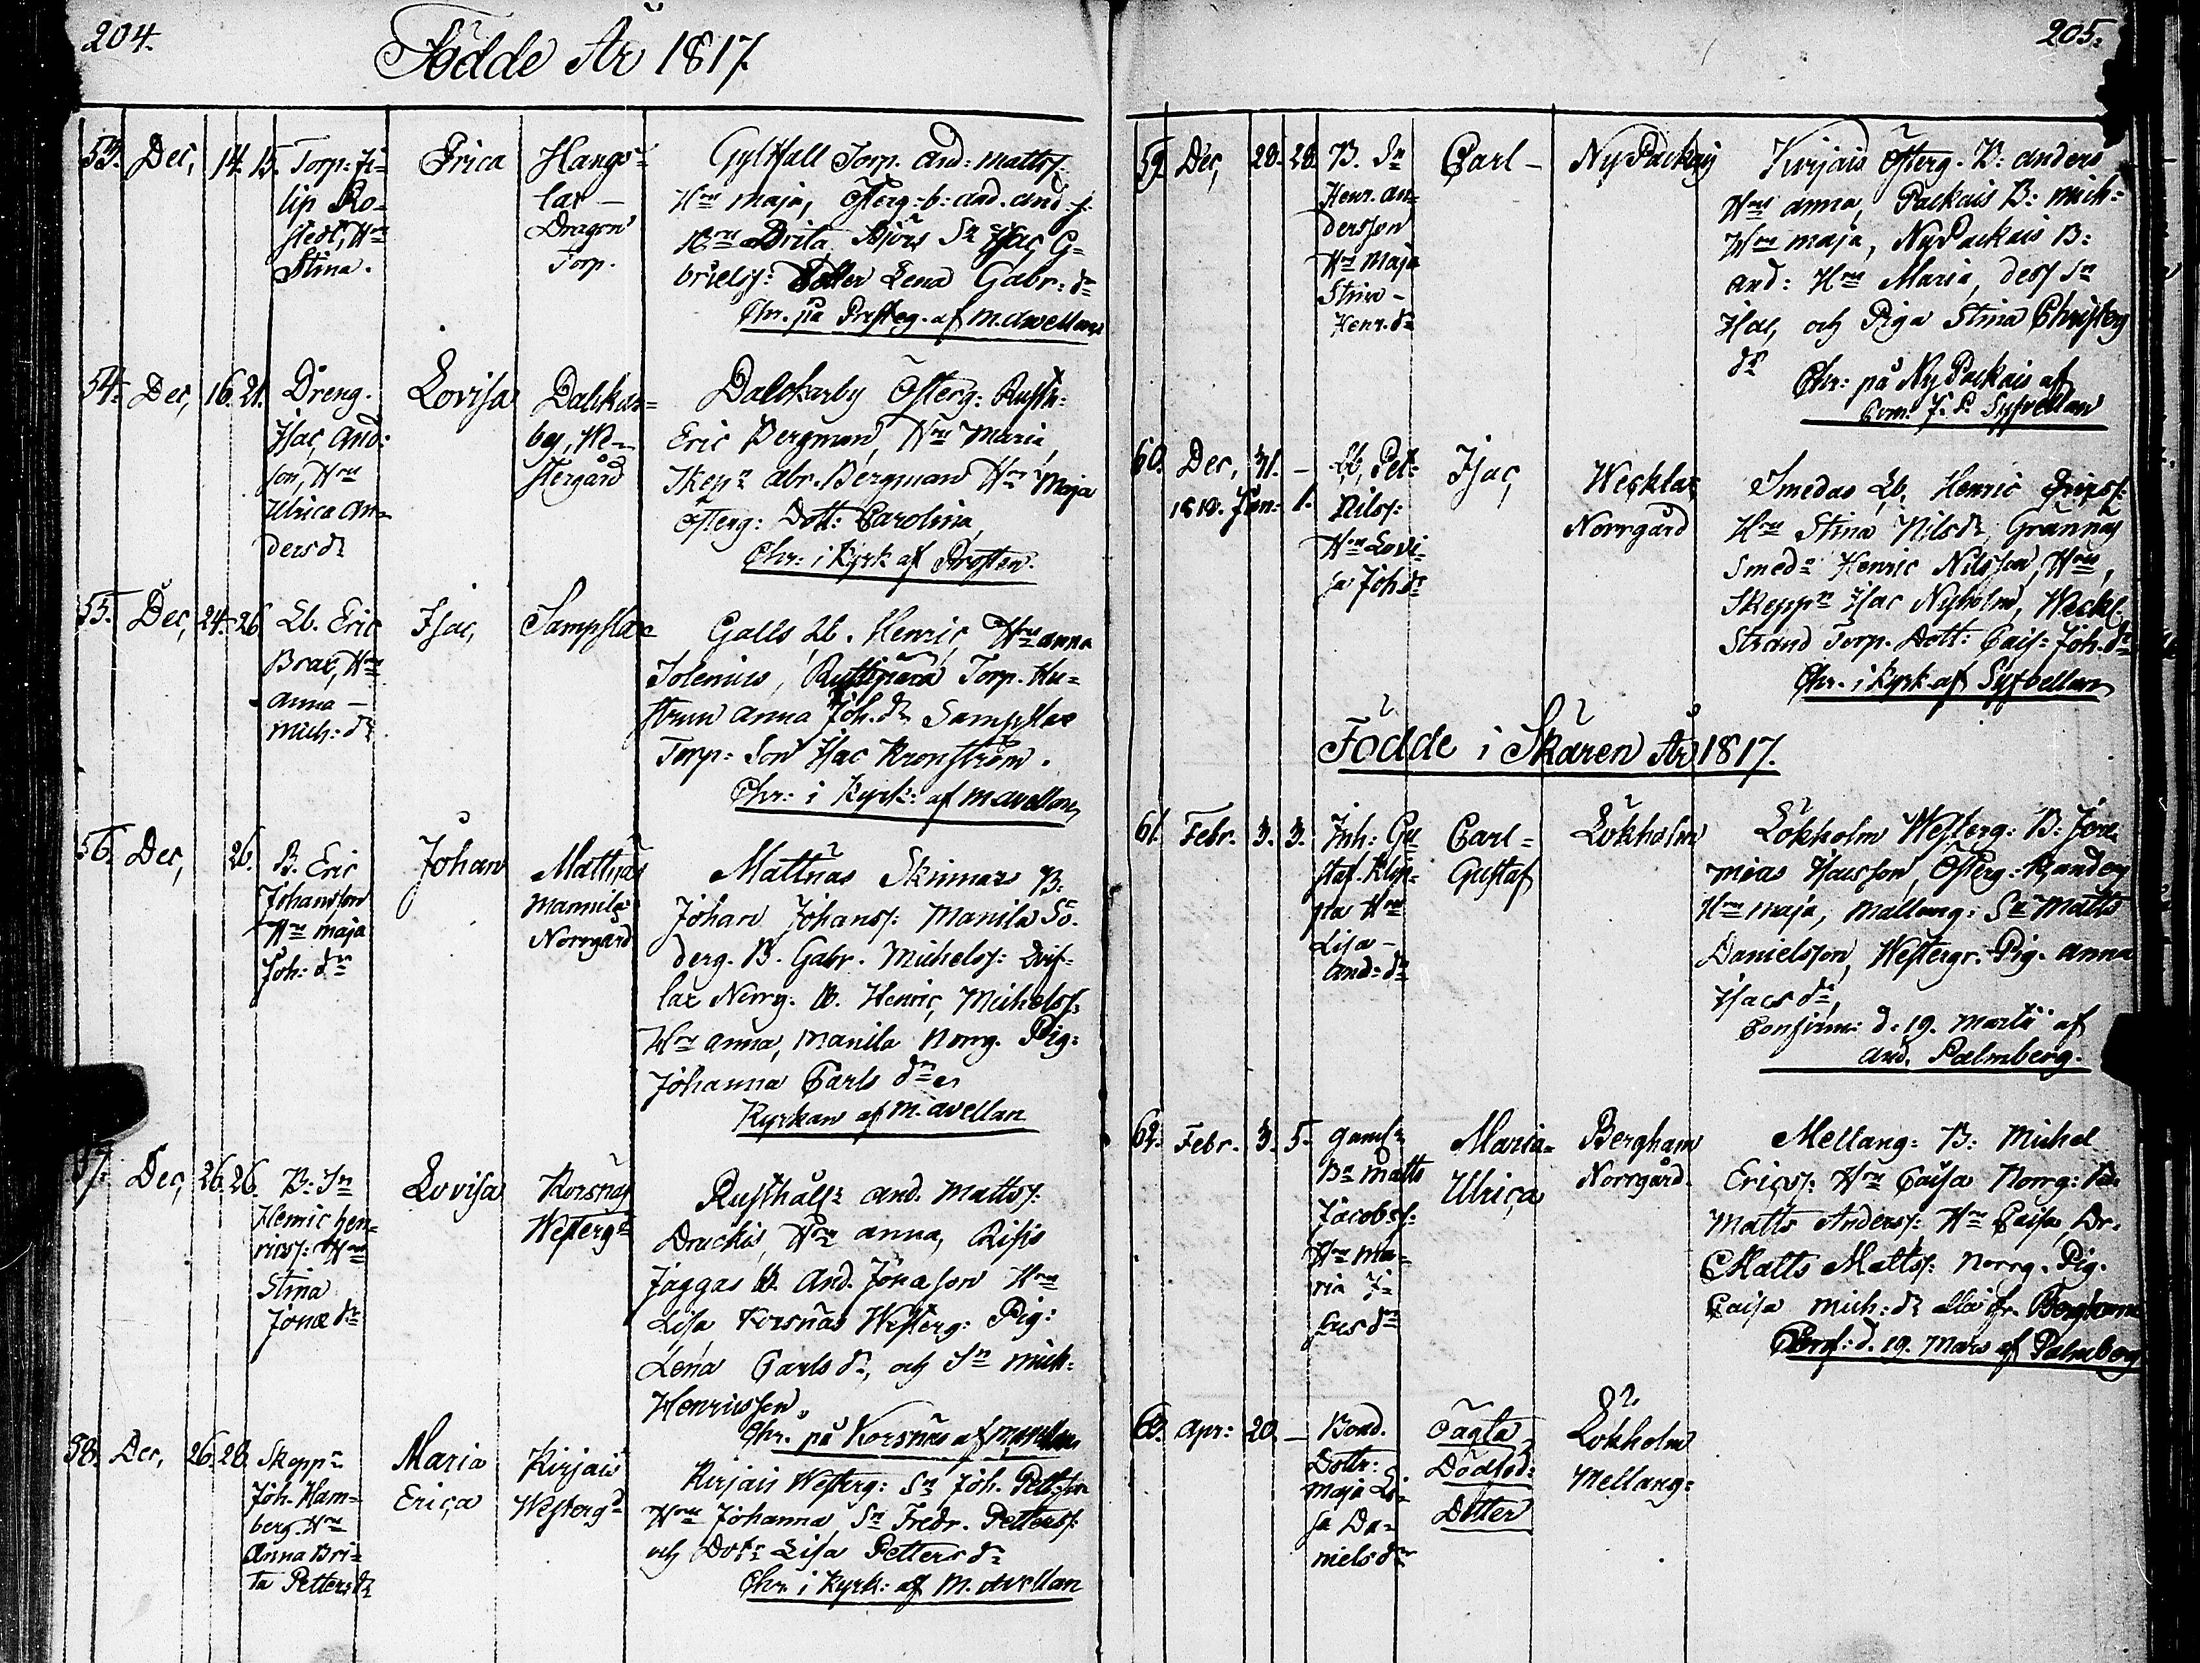 204.
Födde År 1817.
53. Dec, 14. 15. Torp: Fi=
lip Ro=
stedt, Hru
Stina.
Erica
Hangs=
lax –
Dragon
Torp.
Gylttall Torp. And: Mattss:
Hru Maja, Österg: b: And. And.s:
Hru Brita, Sn Isac G=
brielss: Dotter Lena Gabr: dr
Chr. på Presteg. af M. Avellan
54. Dec, 16. 21. Dreng.
Isac And:
son, Hru
Ulrica An=
ders dr
Lovisa
Dalskar=
by, We=
stergård
Dalskarby Österg: Rusth:
Eric Bergman, Hru Maria,
Skepr Abr. Bergman Hru Maja
Österg: Dott: Carolina,
Chr: i Kyrk af Prosten.
55. Dec, 24. 26. Lb. Eric
Brax, Hru
Anna –
Mich: dr
Isac,
Sampslax
Galls Lb. Henric, Hru Anna
Torp. Hu=
strun Anna Joh. dr Sampslax
Torp: Son Isac Kronström.
Chr: i Kyrk: af M Avellan
56. Dec, 26. B. Eric
Johansson
Hru Maja
Joh: dr
Johan
Mattnäs
Mannila
Norrgård
Mattnäs Skinnars B:
Johan Johanss: Manila Sö=
derg. B. Gabr. Michelss:
lax Norrg. B. Henric, Michelss:
Hru Anna, Manila Norrg. Pig:
Johanna Carls dr
Kyrkan af M. Avellan
57. Dec, 26. 26. B: Sn
Henric Hen=
ricss: Hru
Stina
Jonæ dr
Lovisa
Korsnäs
Westergd
Rusthålls And. Mattss:
Drackis, Hru Anna, Risis
Jaggas B. And. Jönason Hru
Lisa Korsnäs Westerg: Pig:
Lena Carls dr, och Sn Mich:
Henricsson.
Chr. på Korsnäs af M Avellan
58. Dec, 26. 28. Skeppr
Joh. Ham=
berg. Hru
Anna Bri=
ta Petters dr
Maria
Erica
Kirjais
Westergd
Kirjais Westerg: Sn Joh. Petters
Hru Johanna Sn Fredr. Petterss:
och Dotr Lisa Petters dr
Chr i Kyrk: af M. Avellan
205.
59. Dec, 28. 28. B. Sn
Henr. An=
dersson
Hru Maja
Stina –
Henr. dr
Carl –
Ny Packais
Kirjais Österg. B: Anders
Hru Anna, Packais B: Mich:
Hru Maja, Ny Packais B:
And: Hru Maria, dess Sn
Isac, och Piga Stina Christers
dr
Chr: på Ny Packais af
60. Dec, 31. – Lb, Pet.
1818. Jan: 1. Nilss:
Hru Lovi=
sa Joh dr
Isac,
Wecklax
Norrgård
Smedas Lb, Henric Ericss:
Hru Stina Nils dr Grannas
Smed Henric Nilsson, Hru,
Skeppr Isac Nyholm, Weckl.
Strand Torp. Dott: Cais: Joh. dr
Chr. i Kyrk. af
Födde i Skären År 1817.
61. Febr. 3. 3. Inh: Gu
staf Klin=
Hru
Lisa –
And: dr
Carl=
Gustaf
Lökholm
Lökholm Westerg: B: Jere
mias Isacsson, Österg: B Anders
Hru Maja, Mellang: Sn Matts
Danielsson, Westergr. Pig. Anna
Isacs dr,
Confirm: d. 19. Martii af
And. Palmberg.
62. Febr. 3. 5. Gaml
Bn Matts
Jacobss:
Hru Ma=
ria
Maria=
Ulrica
Bergham
Norrgård.
Mellang: B: Michel
Ericss: Hru Caisa Norrg:
Matts Anderss: Hru Caisa, Dr.
Matts Mattss: Norrg. Pig.
Caisa Mich: dr alla fr. Bergham
Conf: d. 19. Mars af Palmberg
63. Apr: 20. – Bond.
Dottr:
Maja Li=
sa Da=
niels dr
Oägta
Dödföd:
Dotter
Lökholm
Mellang: